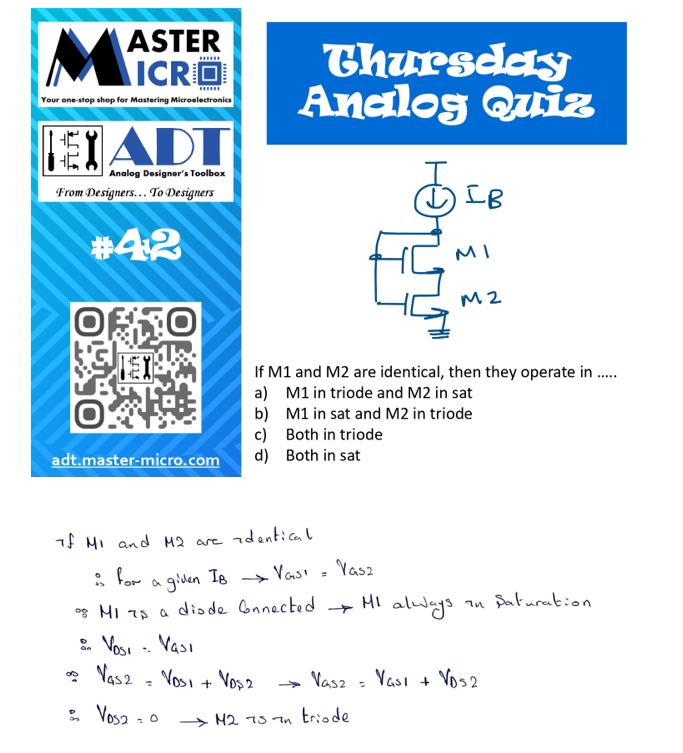 MASTER
MICRO
Your one-stop shop for Mastering Microelectronics
ADT
Analog Designer's Toolbox
From Designers... To Designers
#42
adt.master-micro.com
Thursday
Analog Quiz
IB
M1
M2
If M1 and M2 are identical, then they operate in .....
a) M1 in triode and M2 in sat
b) M1 in sat and M2 in triode
c) Both in triode
d) Both in sat
If M1 and M2 are identical
∴ for a given IB → VGS1 = VGS2
∵ M1 is a diode Connected → M1 always in Saturation
∴ VDS1 = VGS1
∵ VGS2 = VDS1 + VDS2 → VGS2 = VGS1 + VDS2
∴ VDS2 = 0 → M2 is in triode